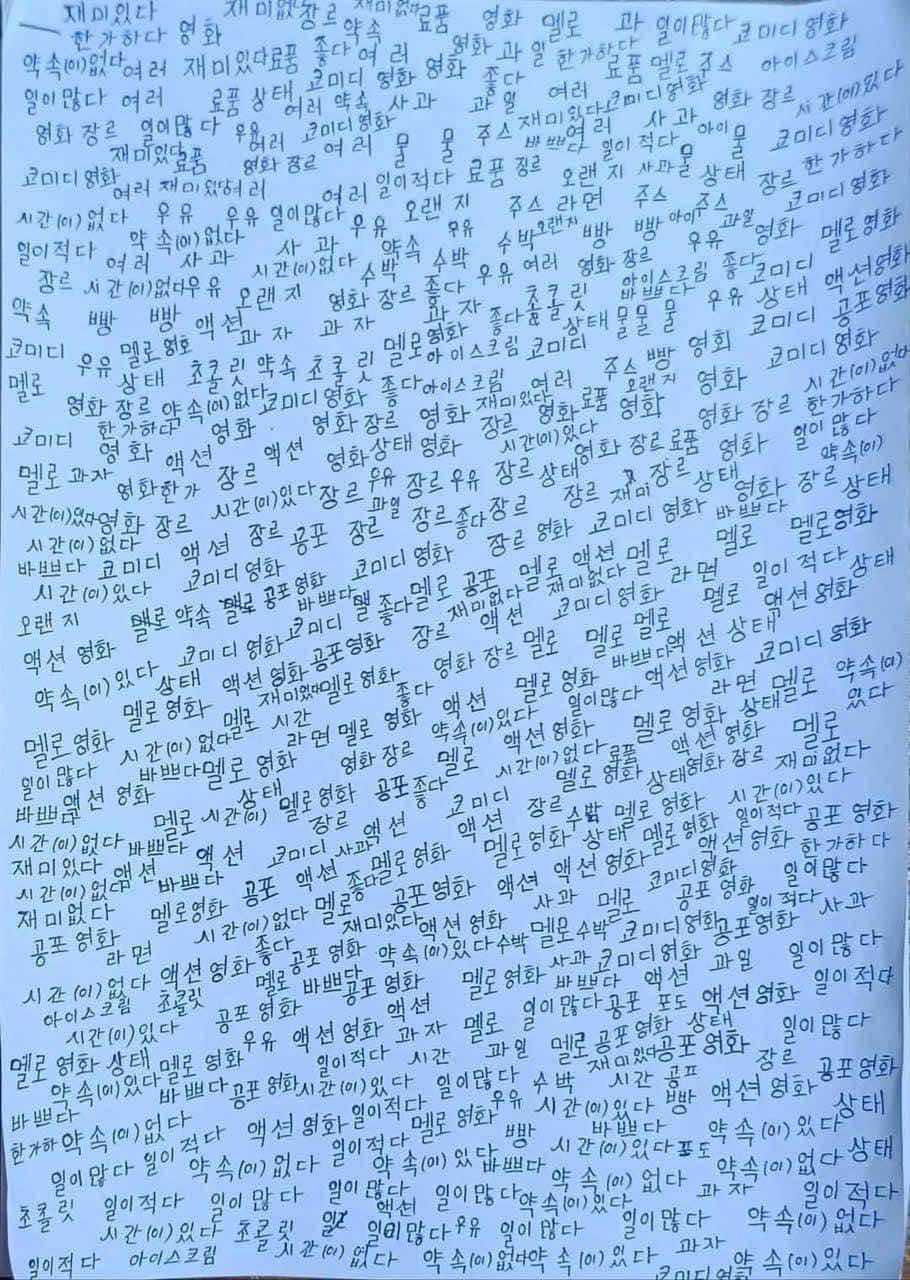 재미있다 재미없 장르 재미없다 료품 영화 멜로 과 일이많다 코미디 영화
한가하다 영화 약속 영화 과일 한가하다
약속(이)없다 여러 재미있다 료품 좋다 여러 료품 멜로 주스 아이스크림
일이많다 여러 료품 상태 코미디 영화 영화 좋다 여러 코미디영화
영화 장르 일이많다 우유 여러 약속 사과 과일 사과 영화 장르 시간(이)있다
재미있다 료품 여러 코미디영화 여러 물 물 주스 재미있다 여러 일이적다 아이 물 코미디영화
코미디영화 여러 재미있다 여러 영화장르 여러 일이적다 료품 장르 오랜지 사과 물 상태 장르 한가하다
시간(이)없다 우유 우유 일이많다 우유 오랜지 주스 라면 주스 주스 코미디영화
일이적다 약속(이)없다 사과 약속 우유 수박 오랜지 빵 빵 아이 과일 영화 멜로영화
장르 여러 사과 시간(이)없다 수박 수박 우유 여러 영화장르 우유 코미디
약속 시간(이)없다 우유 오랜지 영화장르 좋다 초콜릿 아이스크림 좋다 액션영화
빵 빵 액션 과자 과자 과자 좋다 바쁘다 우유 상태 공포영화
코미디 우유 멜로영호 초콜릿 약속 초콜릿 멜로영화 상태 물물 물 코미디
멜로 상태 아이스크림 코미디 주스 빵 영회 코미디영화
영화장르 약속(이)없다 코미디영화 좋다 아이스크림 여러 오랜지 영화 시간(이)없다
코미디 한가하다 영화 영화장르 영화 재미있다 영화 료품 영화 영화 장르 한가하다
멜로 과자 영화 액션 액션 영화 상태 영화 장르 시간(이)있다 영화장르 료품 영화 일이많다
영화 한가 장르 우유 장르 우유 장르 상태 장르 상태 약속(이)
시간(이)있다 영화 장르 시간(이)있다 장르 과일 장르 좋다 장르 장르 재미 영화 장르 상태
시간(이)없다 코미디 액션 장르 공포 장르 장르 영화 코미디영화 바쁘다
바쁘다 시간(이)있다 코미디영화 코미디영화 멜로 액션 멜로 멜로 멜로영화
오랜지 멜로 약속 멜로 공포영화 바쁘다 멜로 공포 재미없다 재미없다 라면 일이적다 상태
액션 영화 코미디영화 코미디 좋다 장르 액션 코미디영화 멜로 액션영화
약속(이)있다 상태 액션영화 공포영화 영화 장르 멜로 멜로 멜로 액션 상태
멜로영화 멜로영화 재미있다 멜로영화 좋다 멜로영화 바쁘다 액션영화 코미디영화
일이많다 시간(이)없다 멜로 시간 라면 멜로 영화 액션 일이많다 라면 멜로 약속(이)
바쁘다 바쁘다 멜로영화 영화 장르 약속(이)있다 액션영화 멜로영화 상태 있다
액션 영화 상태 멜로영화 공포 좋다 멜로 시간(이)없다 료품 액션 영화 멜로
시간(이)없다 멜로 시간(이) 장르 코미디 멜로 영화 상태 영화 장르 재미없다
재미있다 바쁘다 액션 코미디 사과 액션 액션 장르 수박 멜로영화 시간(이)있다
시간(이)없다 액션 바쁘다 액션 멜로영화 멜로영화 상태 멜로영화 일이적다 공포영화
재미없다 멜로영화 공포 좋다 공포영화 액션 액션영화 액션영화 한가하다
공포영화 시간(이)없다 멜로 사과 멜로 코미디영화 일이많다
라면 좋다 재미있다 액션영화 공포영화 일이적다 사과
시간(이)없다 액션영화 공포영화 약속(이)있다 수박 멜로 수박 코미디영화 공포영화
아이스크림 초콜릿 멜로 바쁘다 공포영화 멜로영화 사과 코미디영화 일이많다
시간(이)있다 공포영화 바쁘다 액션 과일 일이적다
우유 액션영화 액션 과자 멜로 일이많다 공포 포도 액션영화
멜로 영화 상태 멜로영화 일이적다 시간 과일 멜로 공포영화 상태 일이많다
약속(이)있다 바쁘다 공포영화 시간(이)있다 일이많다 수박 재미있다 공포영화 장르 공포영화
바쁘다 우유 시간 공프 액션영화
한가하 약속(이)없다 액션영화 일이적다 멜로영화 시간(이)있다 빵 상태
일이많다 일이적다 일이적다 빵 바쁘다 약속(이)있다
약속(이)없다 약속(이)있다 바쁘다 시간(이)있다 포도 상태
초콜릿 일이적다 일이많다 일이많다 약속(이)없다 약속(이)없다
액션 일이많다 약속(이)있다 과자 일이적다
시간(이)있다 초콜릿 일이많다 우유 일이많다 일이많다 약속(이)없다
일이적다 아이스크림 시간(이)없다 약속(이)없다 약속(이)있다 과자 약속(이)있다
코미디영화